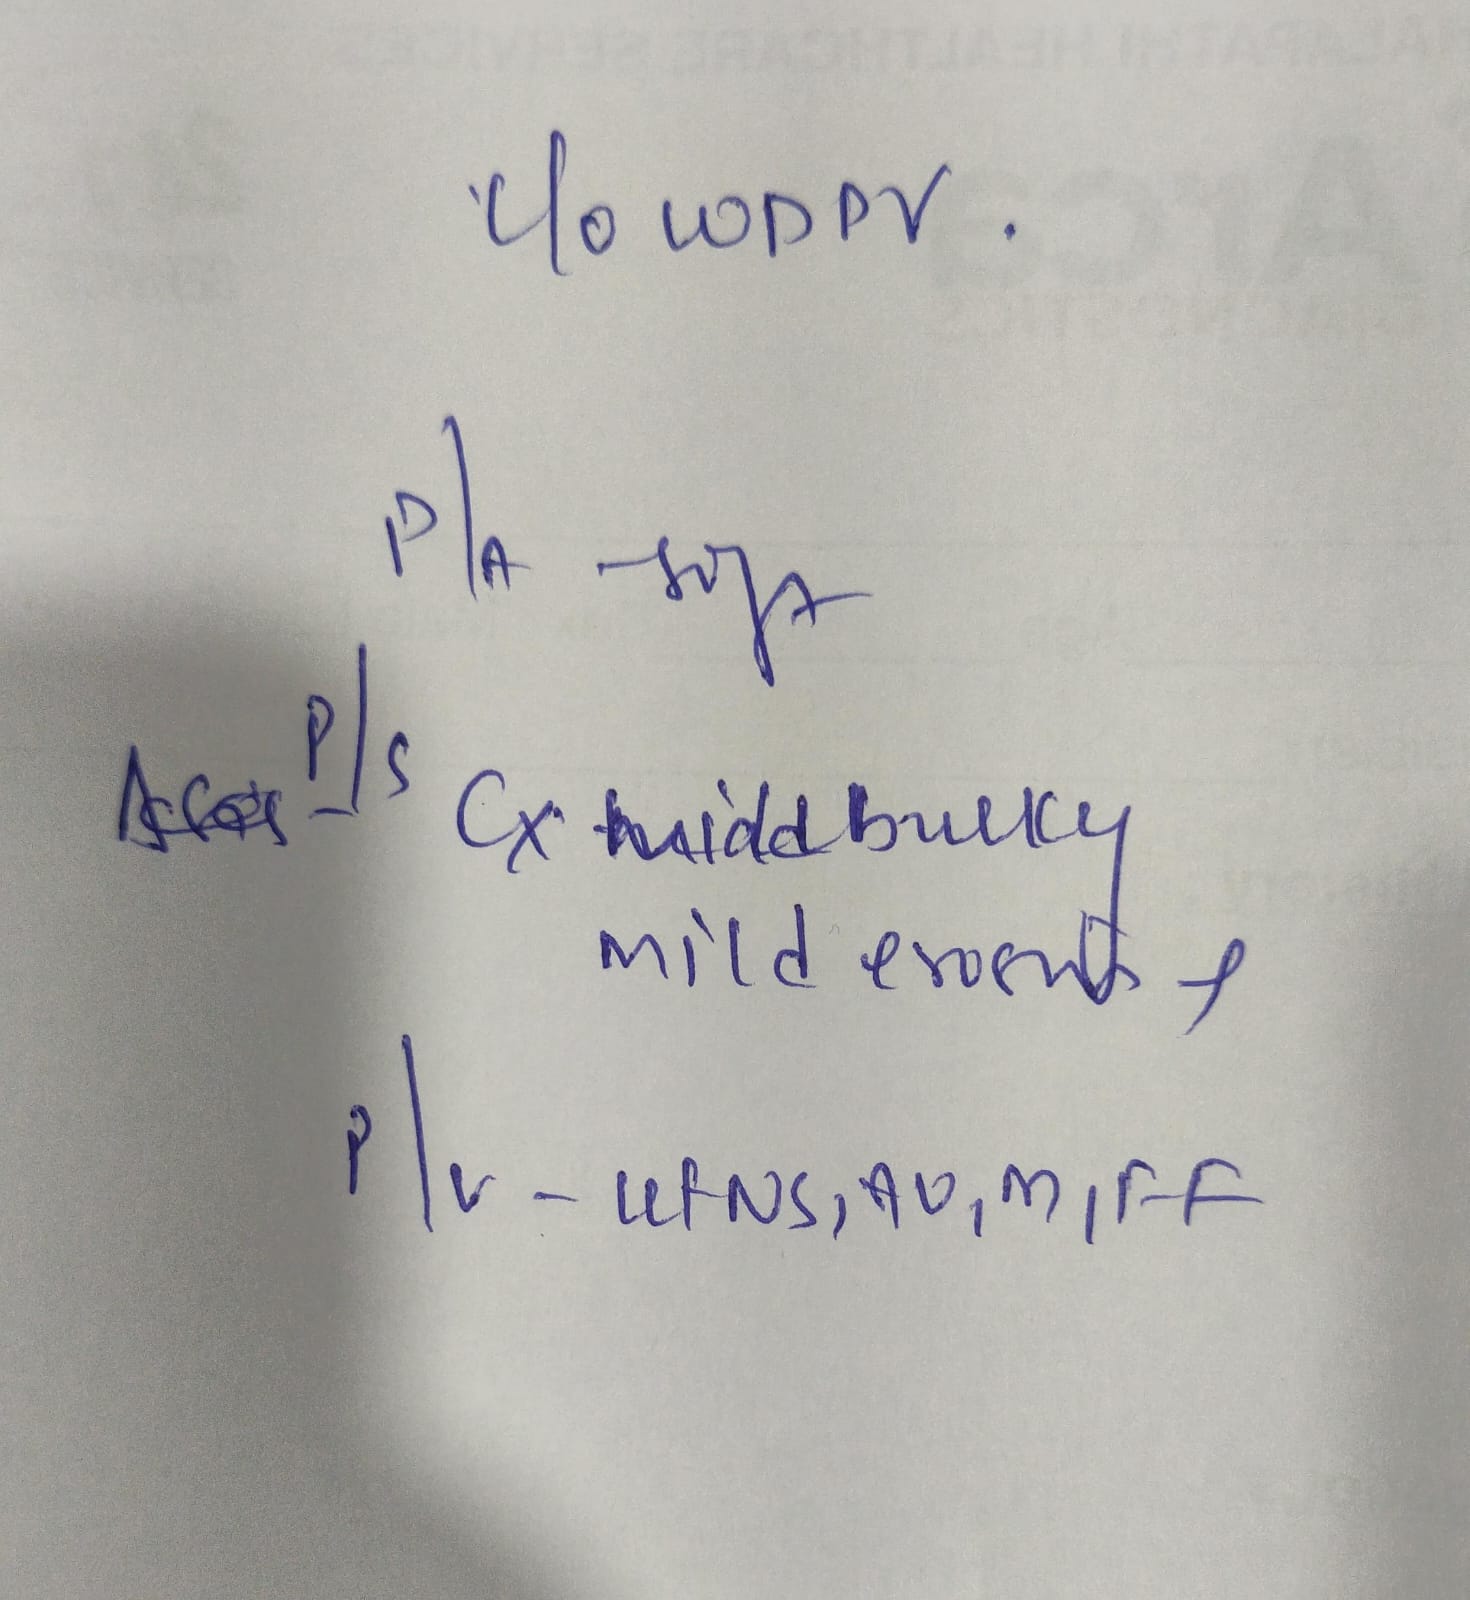 c/o WDPV.
P/A - soft
P/S Cx middbulky
mild erosion +
P/V - UTNS, AV, M, FF